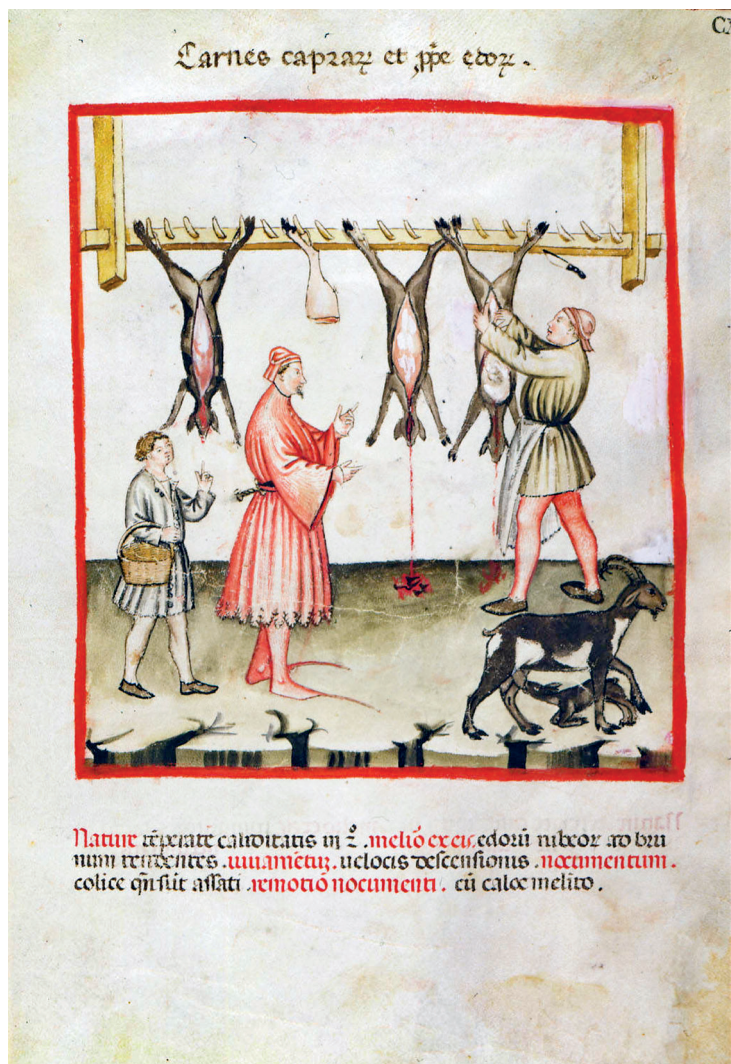 CX
Carnes caprarꝝ et ꝓpe edorꝝ .
Nature tēperate caliditatis in 2º . melio᷑ ex eis . edorū rubeor ad bru
num tendentes . iuuamētuȝ . uelocis descensionis . nocumentum .
colice qn̄ sūt assati . remotiō nocumenti . cū calore mellito .